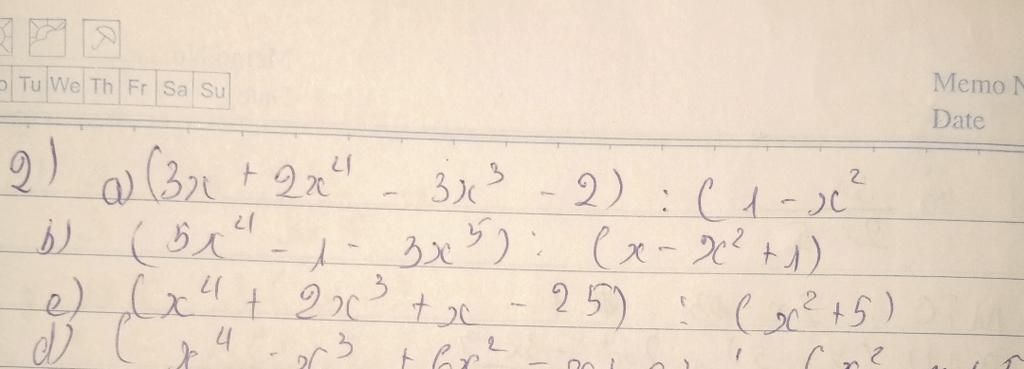 Tu We Th Fr Sa Su
Memo
Date
2) a) (3x + 2x⁴ - 3x³ - 2) : (1 - x²
b) (5x⁴ - 1 - 3x⁵) : (x - x² + 1)
c) (x⁴ + 2x³ + x - 25) : (x² + 5)
d) ( x⁴ - x³ + 6x² - : (x²